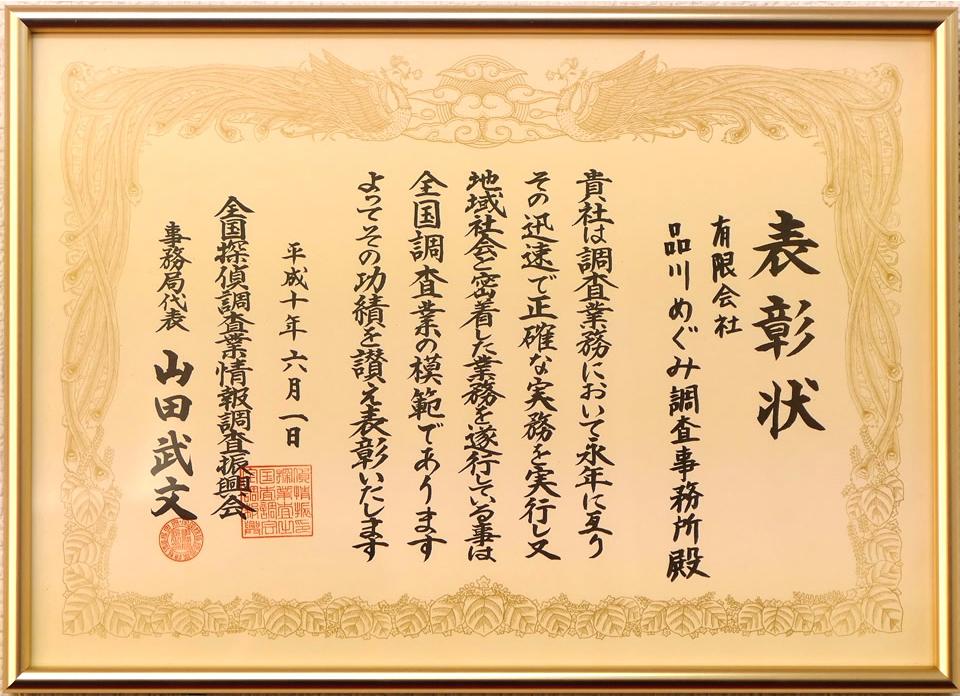 表彰状
有限会社
品川めぐみ調査事務所殿
貴社は調査業務において永年に亙り
その迅速で正確な実務を実行し又
地域社会と密着した業務を遂行している事は
全国調査業の模範であります
よってその功績を讃え表彰いたします
平成十年六月一日
全国探偵調査業情報調査振興会
事務局代表 山田武文